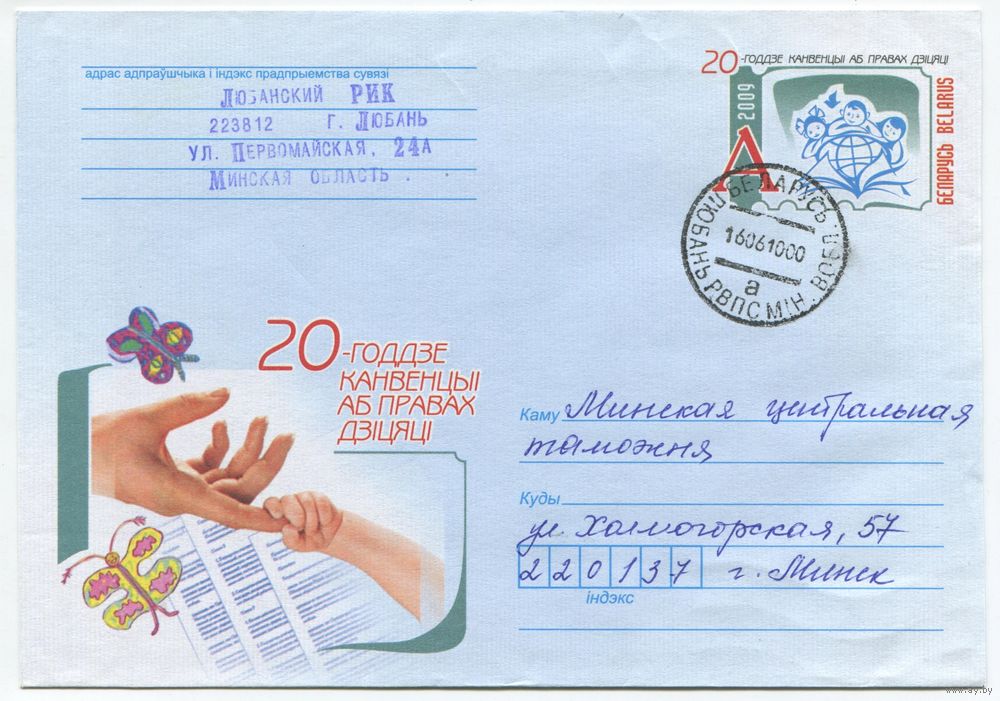 адрас адпраўшчыка і індэкс прадпрыемства сувязі
ЛЮБАНСКИЙ РИК
223812 Г. ЛЮБАНЬ
УЛ. ПЕРВОМАЙСКАЯ, 24А
МИНСКАЯ ОБЛАСТЬ .
20-ГОДДЗЕ КАНВЕНЦЫІ АБ ПРАВАХ ДЗІЦЯЦІ
2009
А
БЕЛАРУСЬ BELARUS
БЕЛАРУСЬ
ЛЮБАНЬ РВПС МІН. ВОБЛ
16061000
а
20-ГОДДЗЕ
КАНВЕНЦЫІ
АБ ПРАВАХ
ДЗІЦЯЦІ
Каму Минская центральная
таможня
Куды
ул. Холмогорская, 57
220137 г. Минск
індэкс
www.ay.by